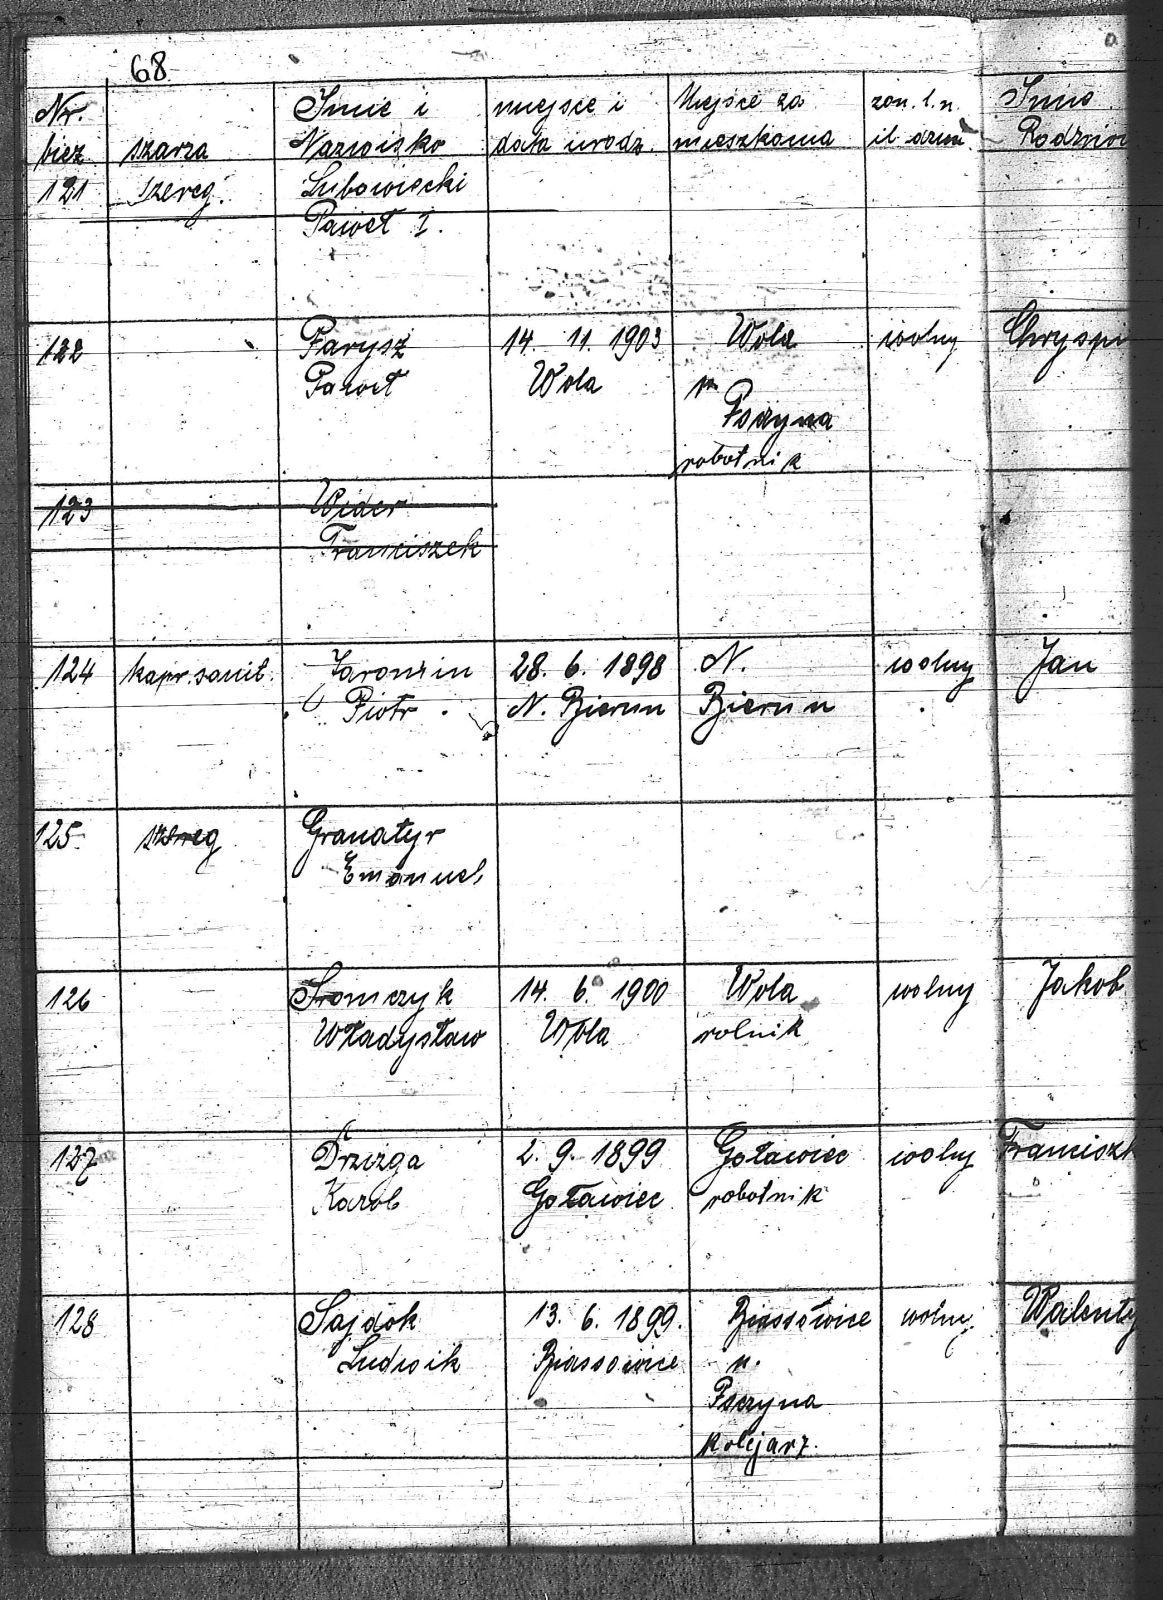 68
Nr. bież. szarża Imie i Nazwisko miejsce i data urodz. Miejsce za mieszkania żon. l. n. il. dzieci Imio Rodzico
121 szereg. Lubowiecki
Paweł I.
122 Parysz 14. 11. 1903 Wola wolny Chryspi
Paweł Wola
Pszyna
robotnik
123 Wider
Franciszek
124 kapr. sanit. Jaromin 28. 6. 1898 N. wolny Jan
Piotr N. Bierun Bierun
125 szereg Granatyr
Emanuel
126 Sromczyk 14. 6. 1900 Wola wolny Jakob
Władysław Wola rolnik
127 Drzizga 2. 9. 1899 Goławiec wolny Franciszk
Karol Goławiec robotnik
128 Sajdok 13. 6. 1899. Biassowice wolny Walenty
Ludwik Biassowice n.
Pszyna
kolejarz.